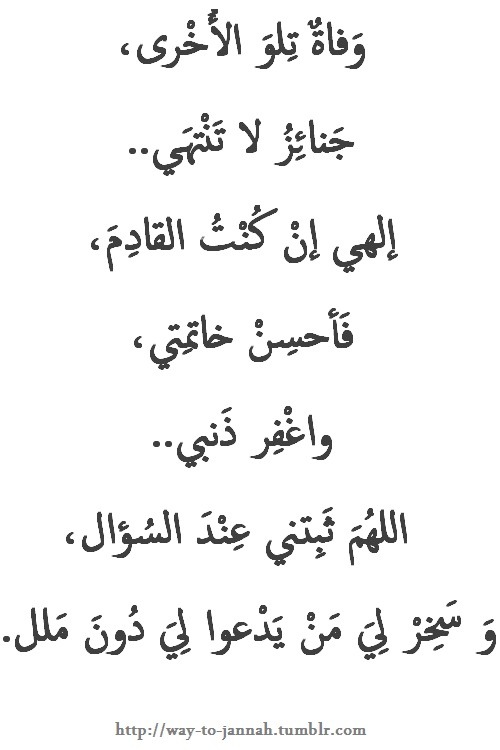 وَفاةٌ تِلوَ الأُخْرى،
جَنائِزُ لا تَنْتهَي..
إلهي إنْ كُنْتُ القادِمَ،
فَأحسِنْ خاتمِتي،
واغْفِر ذَنبي..
اللهُمَ ثَبِتني عِنْدَ السُؤال،
وَ سَخِرْ لِيَ مَنْ يَدْعوا لِيَ دُونَ مَلل.
http://way-to-jannah.tumblr.com